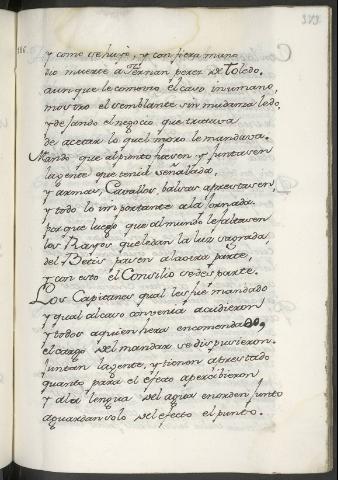 383
116.
y como se huyò, y con fiera mano
dio muerte a Fernan perez de Toledo.
aunque le comovio el caso inumano,
mostro el semblante sin mudanza ledo,
y dejando el negocio que tratava
de acetar lo quel moro le mandava.
Mando que al punto fuesen y juntasen
la gente que tenia señalada,
y armas, Cavallos, balsas aprestasen,
y todo lo importante a la jornada.
porque luego que al mundo le faltasen
los Rayos quele dan la luz sagrada
del Betis pasen a la otra parte,
y con esto el Consilio se departe.
Los Capitanes qual les fue mandado
y qual al caso convenia acudieron
y todos a quien hera encomendado,
el cargo del mandar se dispusieron.
juntan la gente, y tienen aprestado
quanto para el efeto apercibieron
y a la lengua del agua en orden junto
aguardan solo del efecto el punto.